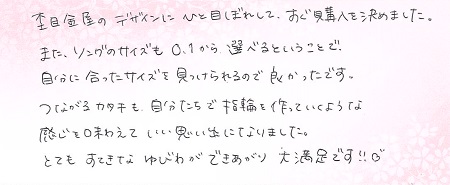 杢目金屋のデザインにひと目ぼれして、すぐ購入を決めました。
また、リングのサイズも0.1から選べるということで
自分に合ったサイズを見つけられるので良かったです。
つながるカタチも、自分たちで指輪を作っていくような
感じを味わえていい思い出になりました。
とてもすてきなゆびわができあがり大満足です!!♡